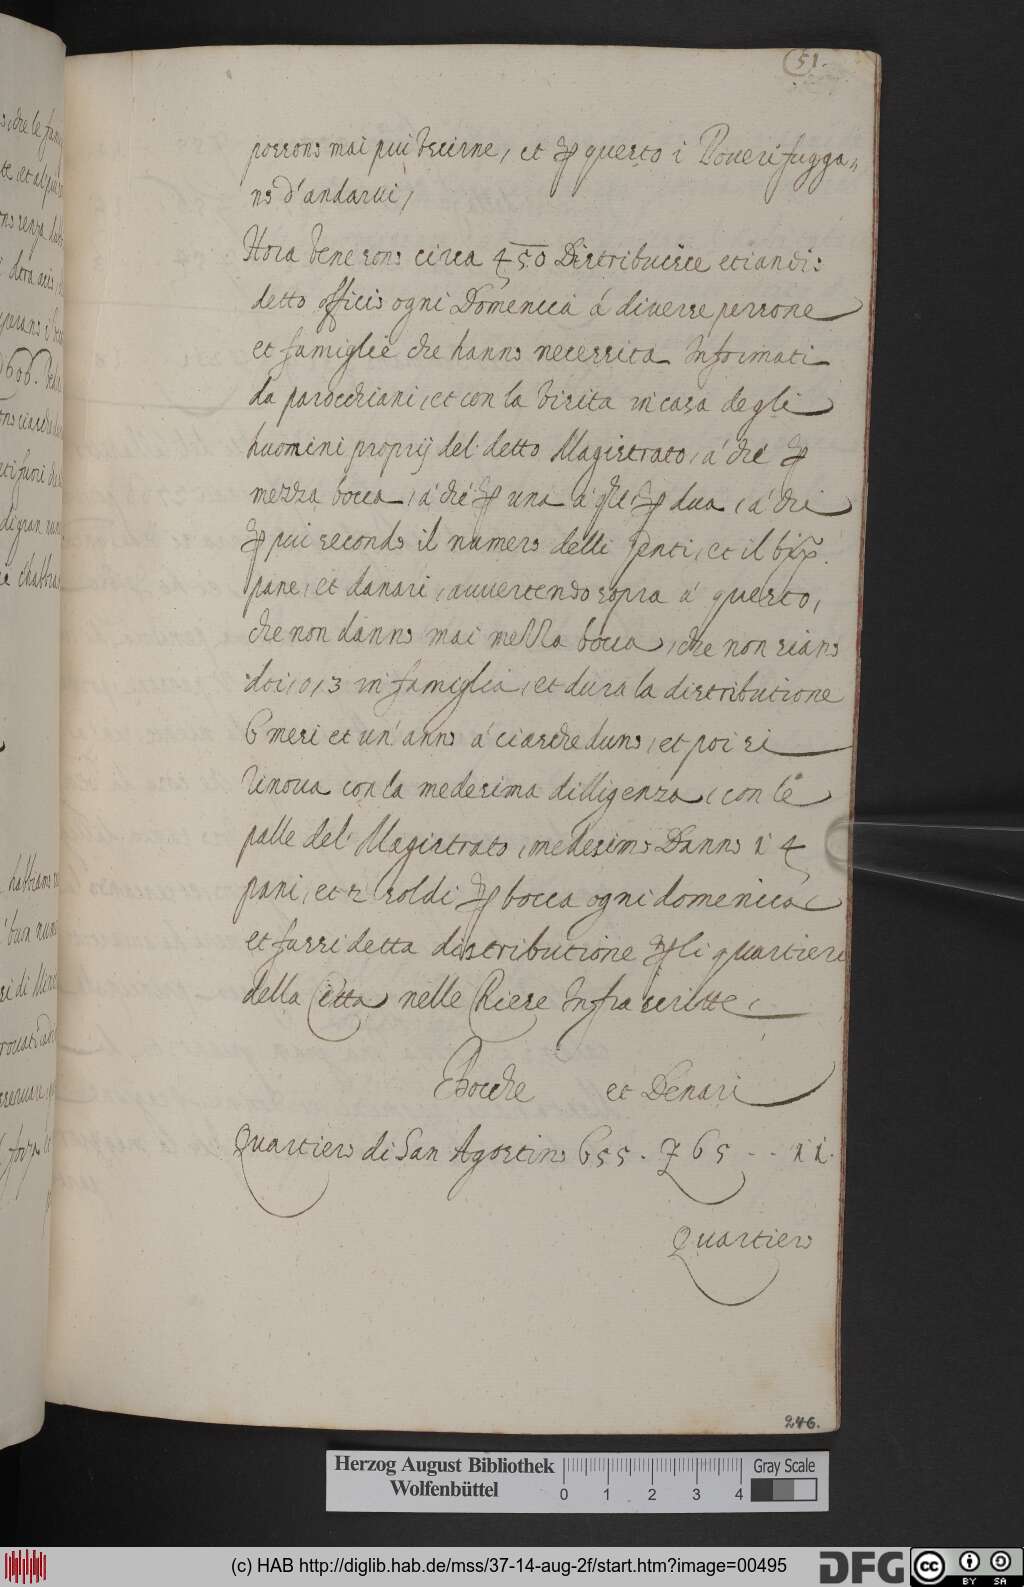 51.
possono mai piu uscirne, et per questo i Poueri fugga-
no d'andarui,
Hora bene sono circa 450 Distribuisce etiandio
detto officio ogni Domenica á diuerse persone
et famiglie che hanno necessita Informati
da parocchiani, et con la visita in casa degli
huomini proprij del detto Magistrato, á che per
mezza bocca, á che per una á che per dua, á chi
per piu secondo il numero delle genti, et il
pane, et danari, auuertendo sopra á questo,
che non danno mai mezza bocca, che non siano
doi, o 3 in famiglia, et dura la distributione
6 mesi et un' anno á ciascheduno, et poi si
rinoua con la medesima dilligenza, con le
palle del Magistrato, medesimo Danno 14
pani, et 2 soldi per bocca ogni domenica
et fassi detta distributione per li quartieri
della Citta nelle Chiese Infrascritte,
Bocche et Denari
Quartiero di San Agostino 655. 765 - - 11.
Quartiero
246.
Herzog August Bibliothek
Wolfenbüttel
0 1 2 3 4
Gray Scale
(c) HAB http://diglib.hab.de/mss/37-14-aug-2f/start.htm?image=00495
DFG
cc BY SA